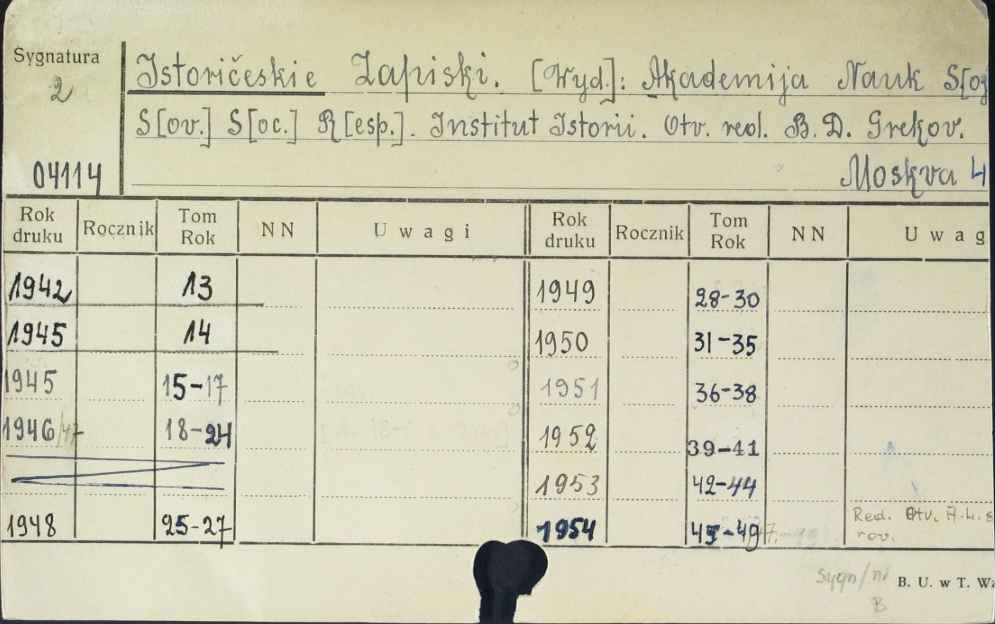 Sygnatura
2
04114
Istoričeskie Zapiski. [Wyd]: Akademija Nauk S[o
S[ov.] S[oc.] R[esp.]. Institut Istorii. Otv. red. B. D. Grekov.
Moskva 4
Rok druku Rocznik Tom Rok NN Uwagi Rok druku Rocznik Tom Rok NN Uwag
1942 13 1949 28-30
1945 14 1950 31-35
1945 15-17 1951 36-38
1946/47 18-24 1952 39-41
1953 42-44
1948 25-27 1954 Red. Otv. A.L.S
rov.
Sygn/nr B. U. w T. Wz
B